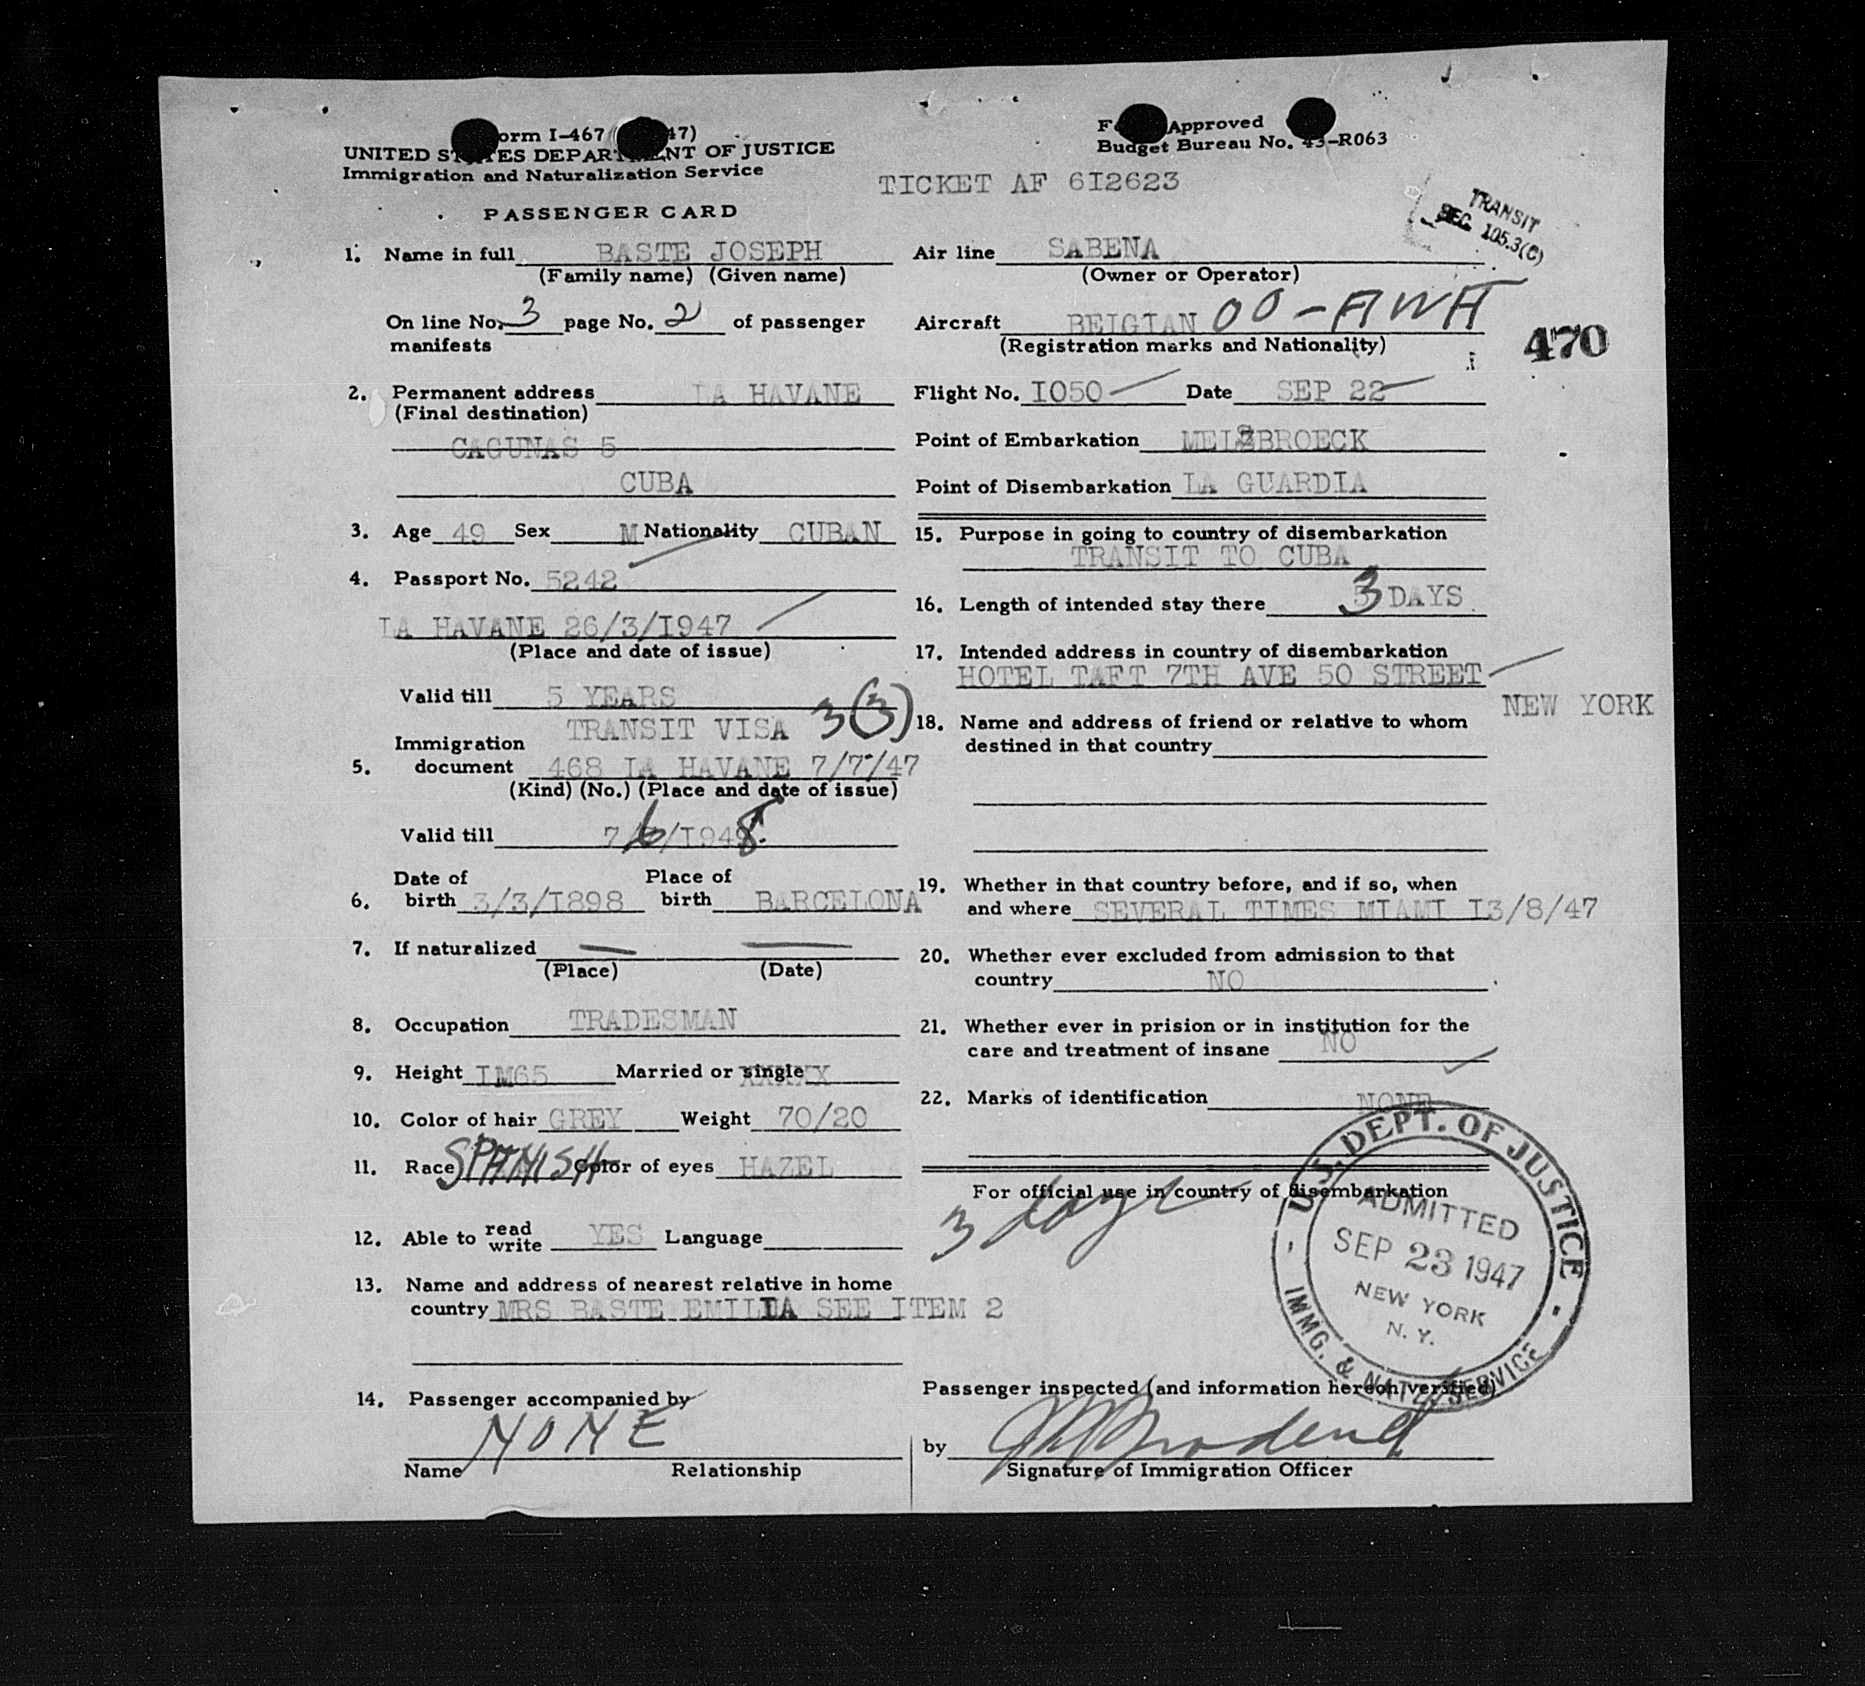 Form I-467 47)
UNITED STATES DEPARTMENT OF JUSTICE
Immigration and Naturalization Service
PASSENGER CARD
Approved
Budget Bureau No. 43-R063
TICKET AF 6I2623
TRANSIT
SEC. 105.3(C)
470
1. Name in full BASTE JOSEPH
(Family name) (Given name)
On line No. 3 page No. 2 of passenger
manifests
2. Permanent address LA HAVANE
(Final destination)
CAGUNAS 5
CUBA
3. Age 49 Sex M Nationality CUBAN
4. Passport No. 5242
LA HAVANE 26/3/I947
(Place and date of issue)
Valid till 5 YEARS
TRANSIT VISA 3(3)
Immigration
5. document 468 LA HAVANE 7/7/47
(Kind) (No.) (Place and date of issue)
Valid till 7/6/I948
Date of Place of
6. birth 3/3/I898 birth BARCELONA
7. If naturalized — —
(Place) (Date)
8. Occupation TRADESMAN
9. Height IM65 Married or single XXXXX
10. Color of hair GREY Weight 70/20
11. Race SPANISH Color of eyes HAZEL
12. Able to read
write YES Language
13. Name and address of nearest relative in home
country MRS BASTE EMILIA SEE ITEM 2
14. Passenger accompanied by
NONE
Name Relationship
Air line SABENA
(Owner or Operator)
Aircraft BEIGIAN OO-AWA
(Registration marks and Nationality)
Flight No. I050 Date SEP 22
Point of Embarkation MELSBROECK
Point of Disembarkation LA GUARDIA
15. Purpose in going to country of disembarkation
TRANSIT TO CUBA
16. Length of intended stay there 3 DAYS
17. Intended address in country of disembarkation
HOTEL TAFT 7TH AVE 50 STREET
NEW YORK
18. Name and address of friend or relative to whom
destined in that country
19. Whether in that country before, and if so, when
and where SEVERAL TIMES MIAMI I3/8/47
20. Whether ever excluded from admission to that
country NO
21. Whether ever in prision or in institution for the
care and treatment of insane NO
22. Marks of identification NONE
For official use in country of disembarkation
3 days
U.S. DEPT. OF JUSTICE
ADMITTED
SEP 23 1947
NEW YORK
N. Y.
IMMG. & NATZ. SERVICE
Passenger inspected (and information hereon verified)
by
Signature of Immigration Officer